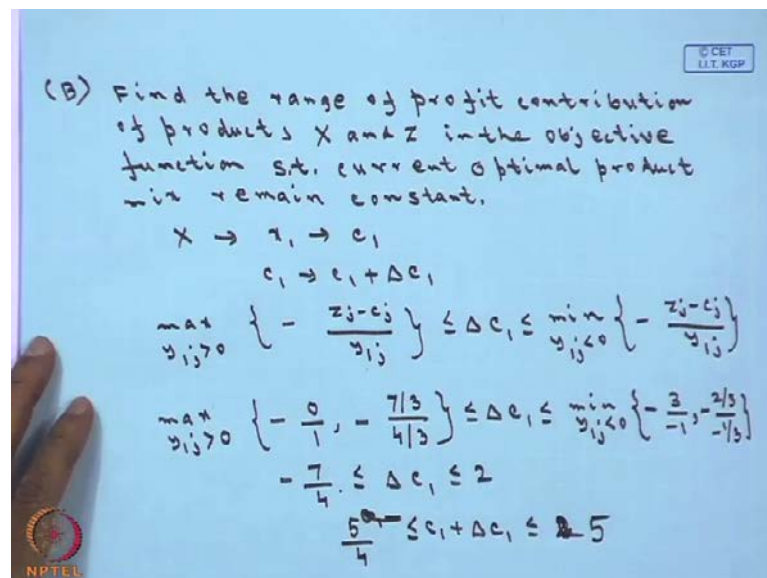 © CET
I.I.T. KGP
(B) Find the range of profit contribution
of products X and Z in the objective
function s.t. current optimal product
mix remain constant.
X → x₁ → c₁
c₁ → c₁ + Δc₁
max_{y₁ⱼ>0} { - (zⱼ-cⱼ)/y₁ⱼ } ≤ Δc₁ ≤ min_{y₁ⱼ<0} { - (zⱼ-cⱼ)/y₁ⱼ }
max_{y₁ⱼ>0} { - 0/1, - (7/3)/(4/3) } ≤ Δc₁ ≤ min_{y₁ⱼ<0} { - 3/-1, - (2/3)/(-1/3) }
- 7/4 ≤ Δc₁ ≤ 2
5/4 ≤ c₁ + Δc₁ ≤ 5
NPTEL